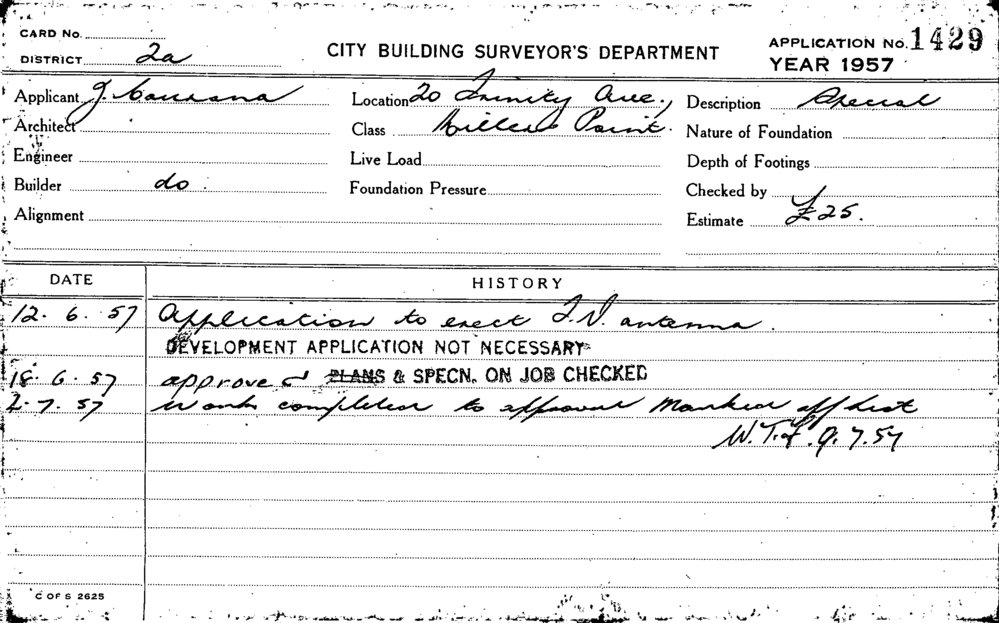 CARD No.
DISTRICT 2a
CITY BUILDING SURVEYOR'S DEPARTMENT
APPLICATION No. 1429
YEAR 1957
Applicant J.
Location 20 Trinity Ave.,
Description Special
Architect
Class Millers Point.
Nature of Foundation
Engineer
Live Load
Depth of Footings
Builder do
Foundation Pressure
Checked by
Alignment
Estimate £25.
DATE
HISTORY
12. 6. 57 Application to erect T.V. antenna.
DEVELOPMENT APPLICATION NOT NECESSARY
18. 6. 57 approved PLANS & SPECN. ON JOB CHECKED
2. 7. 57 Work completed to approval Marked off list
W.T.F. 9.7.57
C OF S 2625